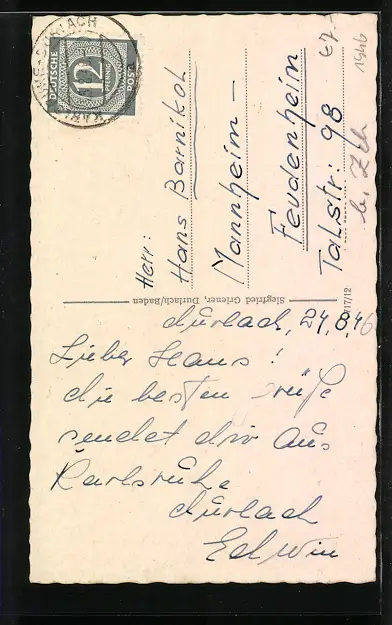 KARLSRUHE-DURLACH
DEUTSCHE
12
PFENNIG
POST
Herr:
Hans Barnikol
Mannheim —
Feudenheim
Talstr: 98
1946
Siegfried Griener, Durlach/Baden
17/12
Durlach, 24.8.46
Lieber Hans!
die besten Grüße
sendet dir aus
Karlsruhe
Durlach
Edwin